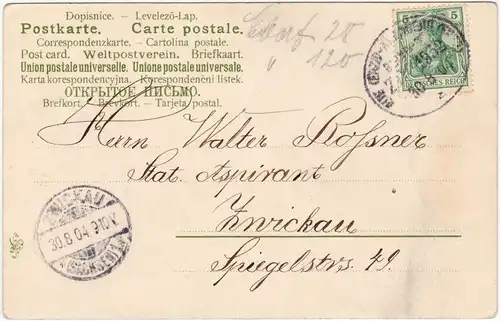 Dopisnice. — Levelező-Lap.
Postkarte. Carte postale.
Correspondenzkarte. — Cartolina postale.
Post card. Weltpostverein. Briefkaart.
Union postale universelle. Unione postale universale.
Karta korespondencyjna. Korespondenční lístek.
ОТКРЫТОЕ ПИСЬМО.
Brefkort. — Brevkort. — Tarjeta postal.
20
" 120
5 5
DEUTSCHES REICH
Herrn Walter Rossner
Stat. Aspirant
Zwickau
Spiegelstrs. 49.
ZWICKAU
30.8.04 9-10V.
(SACHSEN)